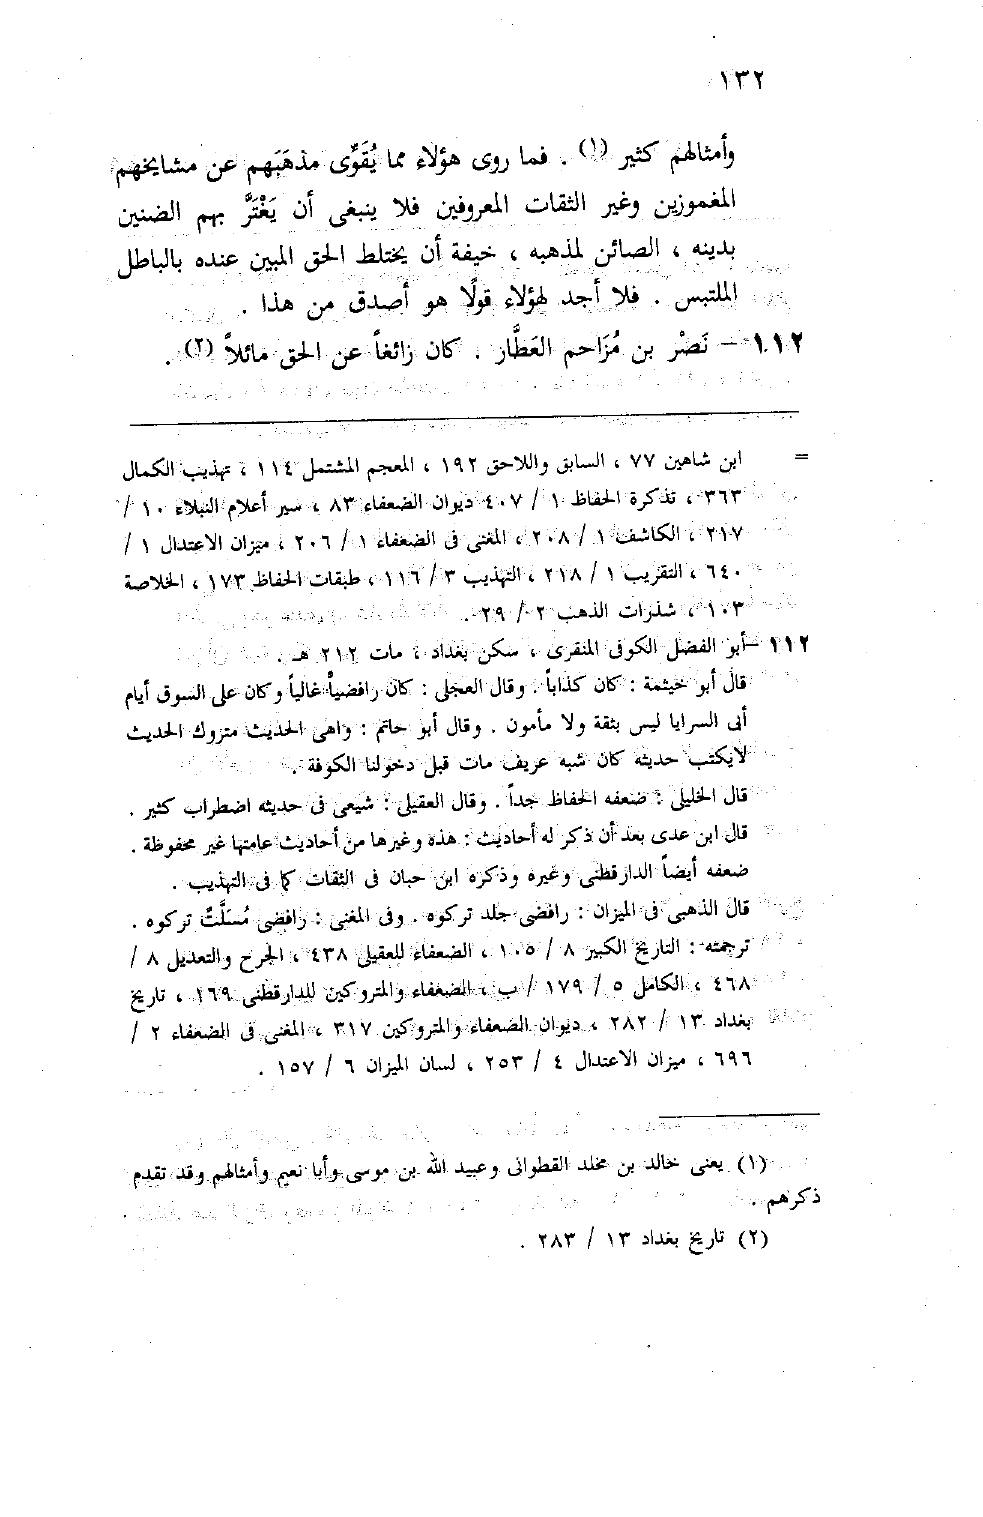 ١٣٢
وأمثالهم كثير (١) . فما روى هؤلاء مما يُقَوِّى مذهَبَهم عن مشايخهم
المغموزين وغير الثقات المعروفين فلا ينبغى أن يَغْتَرَّ بهم الضنين
بدينه ، الصائن لمذهبه ، خيفة أن يختلط الحق المبين عنده بالباطل
الملتبس . فلا أجد لهؤلاء قولًا هو أصدق من هذا .
١١٢ – نَصْر بن مُزَاحم العَطَّار . كان زائغاً عن الحق مائلاً (٢) .
= ابن شاهين ٧٧ ، السابق واللاحق ١٩٢ ، المعجم المشتمل ١١٤ ، تهذيب الكمال
٣٦٣ ، تذكرة الحفاظ ١ / ٤٠٧ ديوان الضعفاء ٨٣ ، سير أعلام النبلاء ١٠ /
٢١٧ ، الكاشف ١ / ٢٠٨ ، المغنى فى الضعفاء ١ / ٢٠٦ ، ميزان الاعتدال ١ /
٦٤٠ ، التقريب ١ / ٢١٨ ، التهذيب ٣ / ١١٦ ، طبقات الحفاظ ١٧٣ ، الخلاصة
١٠٣ ، شذرات الذهب ٢ / ٢٩ .
١١٢ – أبو الفضل الكوفى المنقرى ، سكن بغداد ، مات ٢١٢ هـ .
قال أبو خيثمة : كان كذاباً . وقال العجلى : كان رافضياً غالياً وكان على السوق أيام
أبى السرايا ليس بثقة ولا مأمون . وقال أبو حاتم : واهى الحديث متروك الحديث
لايكتب حديثه كان شبه عريف مات قبل دخولنا الكوفة .
قال الخليلى : ضعفه الحفاظ جداً . وقال العقيلى : شيعى فى حديثه اضطراب كثير .
قال ابن عدى بعد أن ذكر له أحاديث : هذه وغيرها من أحاديث عامتها غير محفوظة .
ضعفه أيضاً الدارقطنى وغيره وذكره ابن حبان فى الثقات كما فى التهذيب .
قال الذهبى فى الميزان : رافضى جلد تركوه . وفى المغنى : رافضى مُسَلَّتٌ تركوه .
ترجمته : التاريخ الكبير ٨ / ١٠٥ ، الضعفاء للعقيلى ٤٣٨ ، الجرح والتعديل ٨ /
٤٦٨ ، الكامل ٥ / ١٧٩ / ب ، الضعفاء والمتروكين للدارقطنى ١٦٩ ، تاريخ
بغداد ١٣ / ٢٨٢ ، ديوان الضعفاء والمتروكين ٣١٧ ، المغنى فى الضعفاء ٢ /
٦٩٦ ، ميزان الاعتدال ٤ / ٢٥٣ ، لسان الميزان ٦ / ١٥٧ .
(١) يعنى خالد بن مخلد القطوانى وعبيد الله بن موسى وأبا نعيم وأمثالهم وقد تقدم
ذكرهم .
(٢) تاريخ بغداد ١٣ / ٢٨٣ .